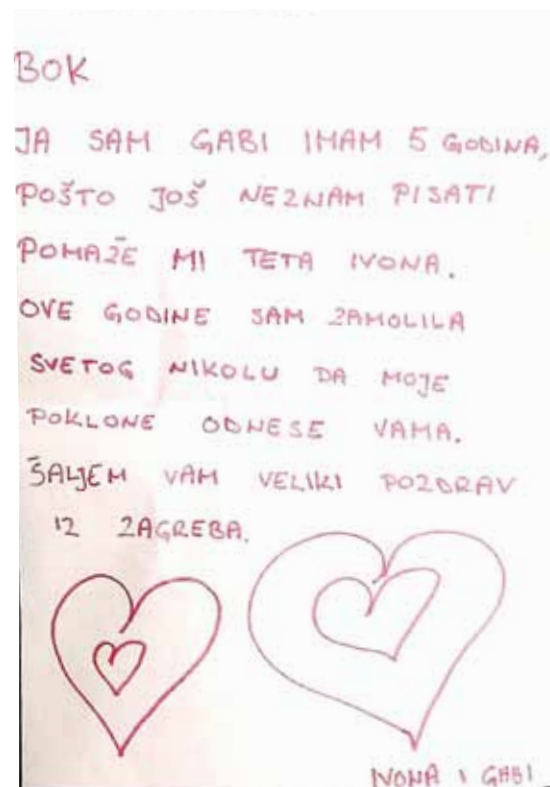 BOK
JA SAM GABI IMAM 5 GODINA,
POŠTO JOŠ NEZNAM PISATI
POMAŽE MI TETA IVONA.
OVE GODINE SAM ZAMOLILA
SVETOG NIKOLU DA MOJE
POKLONE ODNESE VAMA.
ŠALJEM VAM VELIKI POZDRAV
IZ ZAGREBA.
IVONA I GABI